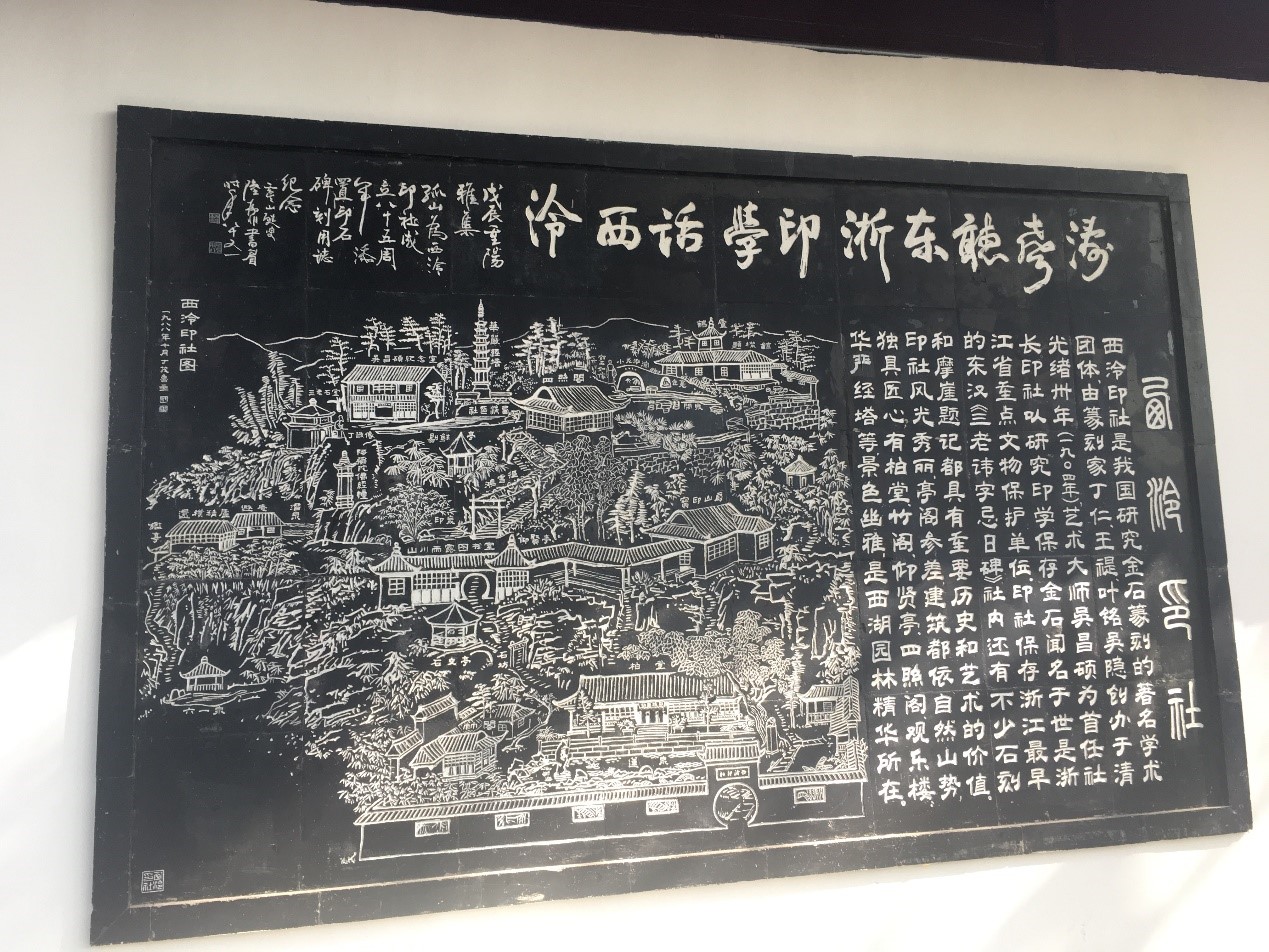 濤聲聽东浙印學話西泠
西泠印社
西泠印社是我国研究金石篆刻的著名学术
团体,由篆刻家丁仁王禔叶铭吴隐创办于清
光绪卅年(一九〇四年)艺术大师吴昌硕为首任社
长印社以研究印学保存金石闻名于世是浙
江省重点文物保护单位,印社保存浙江最早
的东汉《三老讳字忌日碑》社内还有不少石刻
和摩崖题记都具有至要历史和艺术的价值.
印社风光秀丽亭阁参差建筑都依自然山势,
独具匠心有柏堂竹阁仰贤亭,四照阁观乐楼,
华严经塔等景色幽雅是西湖园林精华所在.
戊辰重陽
雅集
孤山為西泠
印社成
立八十五周
年添
置印石
碑刻用誌
紀念
西泠印社图
吴昌硕纪念室
華嚴經塔
四照閣
剔蘚亭
還樸精廬
鑑亭
山川雨露图书室
仰賢亭
石交亭
石坊
柏堂
竹閣
蓮泉
六一泉